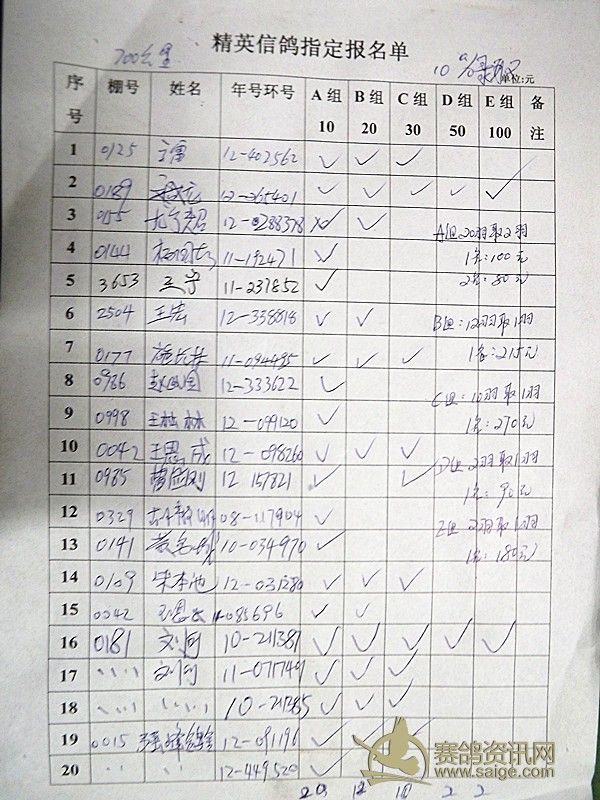 精英信鸽指定报名单
700公里
10%
单位:元
序号 棚号 姓名 年号环号 A组10 B组20 C组30 D组50 E组100 备注
1 0125 12-402562 ✓ ✓ ✓
2 0189 12-265401 ✓ ✓ ✓ ✓ ✓
3 0155 12-0288378 ✓
A组20羽取2羽
4 0144 11-192471 ✓
1名:100元
5 3653 王宁 11-237852 ✓
2名:80元
6 2504 王宏 12-338818 ✓ ✓
B组:12羽取1羽
7 0177 11-094495 ✓ ✓ ✓
1名:215元
8 0986 12-333622 ✓
C组:10羽取1羽
9 0998 王桂林 12-099120 ✓
1名:270元
10 0042 王恩成 12-098260 ✓ ✓ ✓
D组2羽取1羽
11 0985 12 157821 ✓ ✓
1名:90元
12 0329 08-117904 ✓
E组2羽取1羽
13 0141 10-034970 ✓
1名:180元
14 0109 朱本池 12-031280 ✓ ✓ ✓
15 0042 11-085696 ✓ ✓
16 0181 刘 10-211381 ✓ ✓ ✓ ✓ ✓
17 〃 刘 11-071749 ✓ ✓ ✓
18 〃 〃 10-211285 ✓ ✓ ✓
19 0015 12-091196 ✓
20 〃 〃 12-449520 ✓
20 12 10 2 2
赛鸽资讯网
www.saige.com